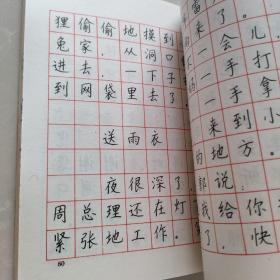 狸偷偷地摸到
兔家，从洞口
进去，一下子
到网袋里去了。
送雨衣
夜很深了，
周总理还在灯
紧张地工作。
60
富
来了。
一会儿
不一手打
一手拿
来到小
的地方。
郭说：
我给你
快